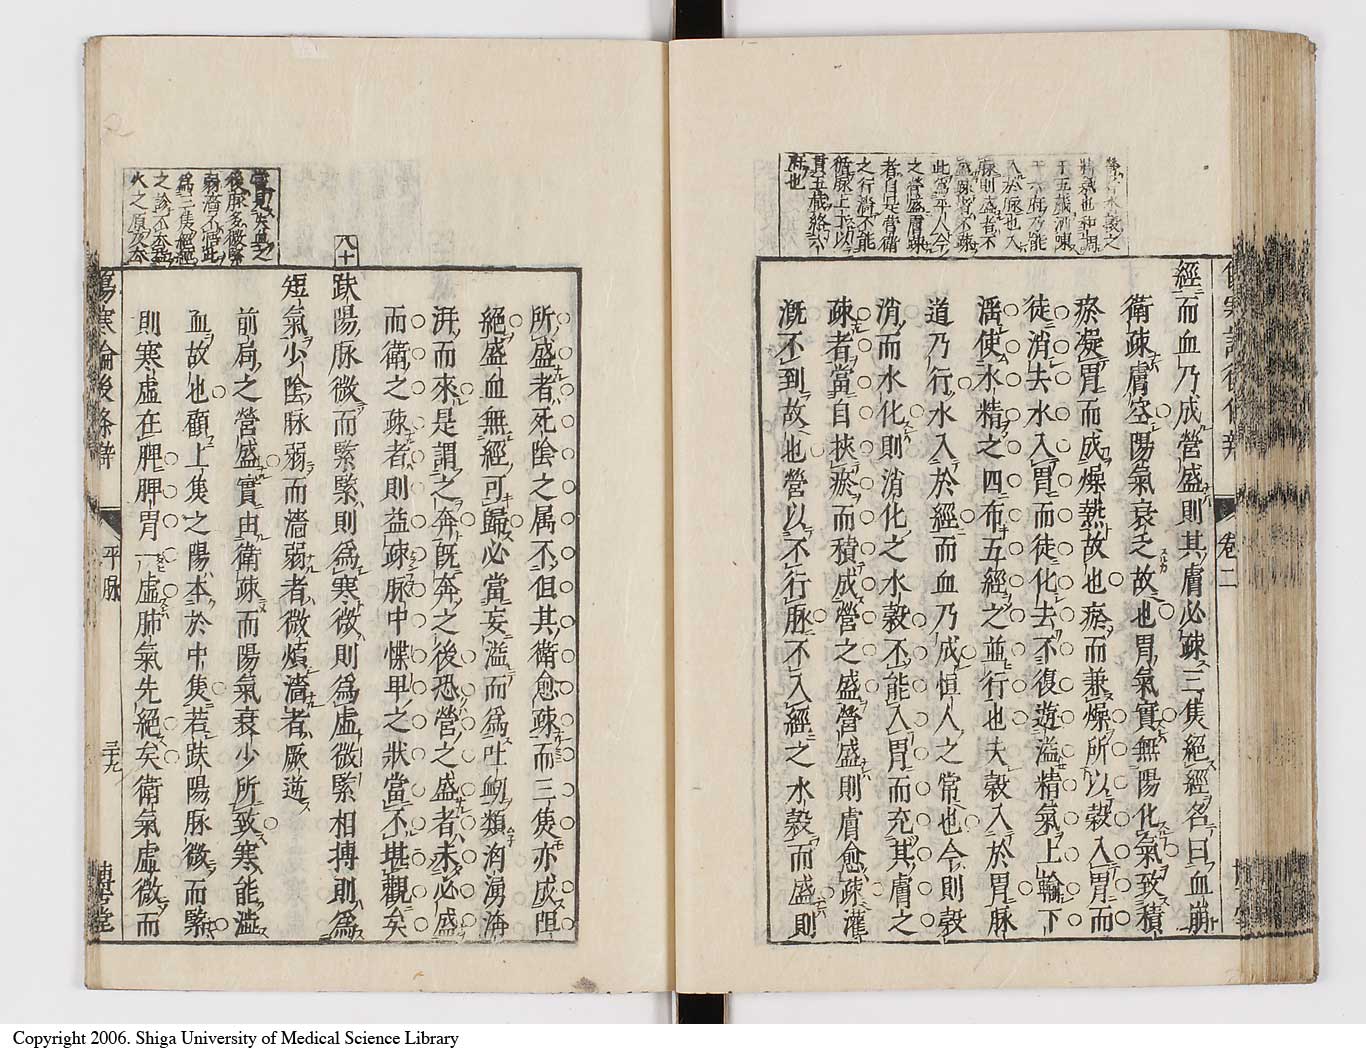 經而血乃成營盛則其膚必疎三焦絕經名曰血崩
衛疎膚空陽氣衰乏故也胃氣實無陽化氣致積
瘀凝胃而成燥熱故也瘀而兼燥所以穀入胃而
徒消去水入胃而徒化去不復遊溢精氣上輸下
潘使水精之四布五經之並行也夫穀入於胃脉
道乃行水入於經而血乃成恒人之常也今則穀
消而水化則消化之水穀不能入胃而充其膚之
疎者當自挾瘀而積成營之盛營盛則膚愈疎灌
溉不到故也營以不行脉不入經之水穀而盛則
卷二
之營盛膚疎
者自是營衛
之行濇不能
循脉上下以
貫五臟絡六
府也
所盛者死陰之属不但其衛愈疎而三焦亦成阻
絕盛血無經可歸必當妄溢而為吐衂類洶湧海
湃而來是謂之奔既奔之後恐營之盛者未必盛
而衛之疎者則益疎脉中慄卑之狀當不堪觀矣
八十
趺陽脉微而緊緊則為寒微則為虛微緊相摶則為
短氣少陰脉弱而濇弱者微煩濇者厥逆
前局之營盛實由衛疎而陽氣衰少所致寒能澁
血故也顧上焦之陽本於中焦若趺陽脉微而緊
則寒虛在脾脾胃一虛肺氣先絕矣衛氣虛微而
後脉多微緊
弱濇不惟此
為三焦經
傷寒論後條辨
平脉
三十九
博古堂